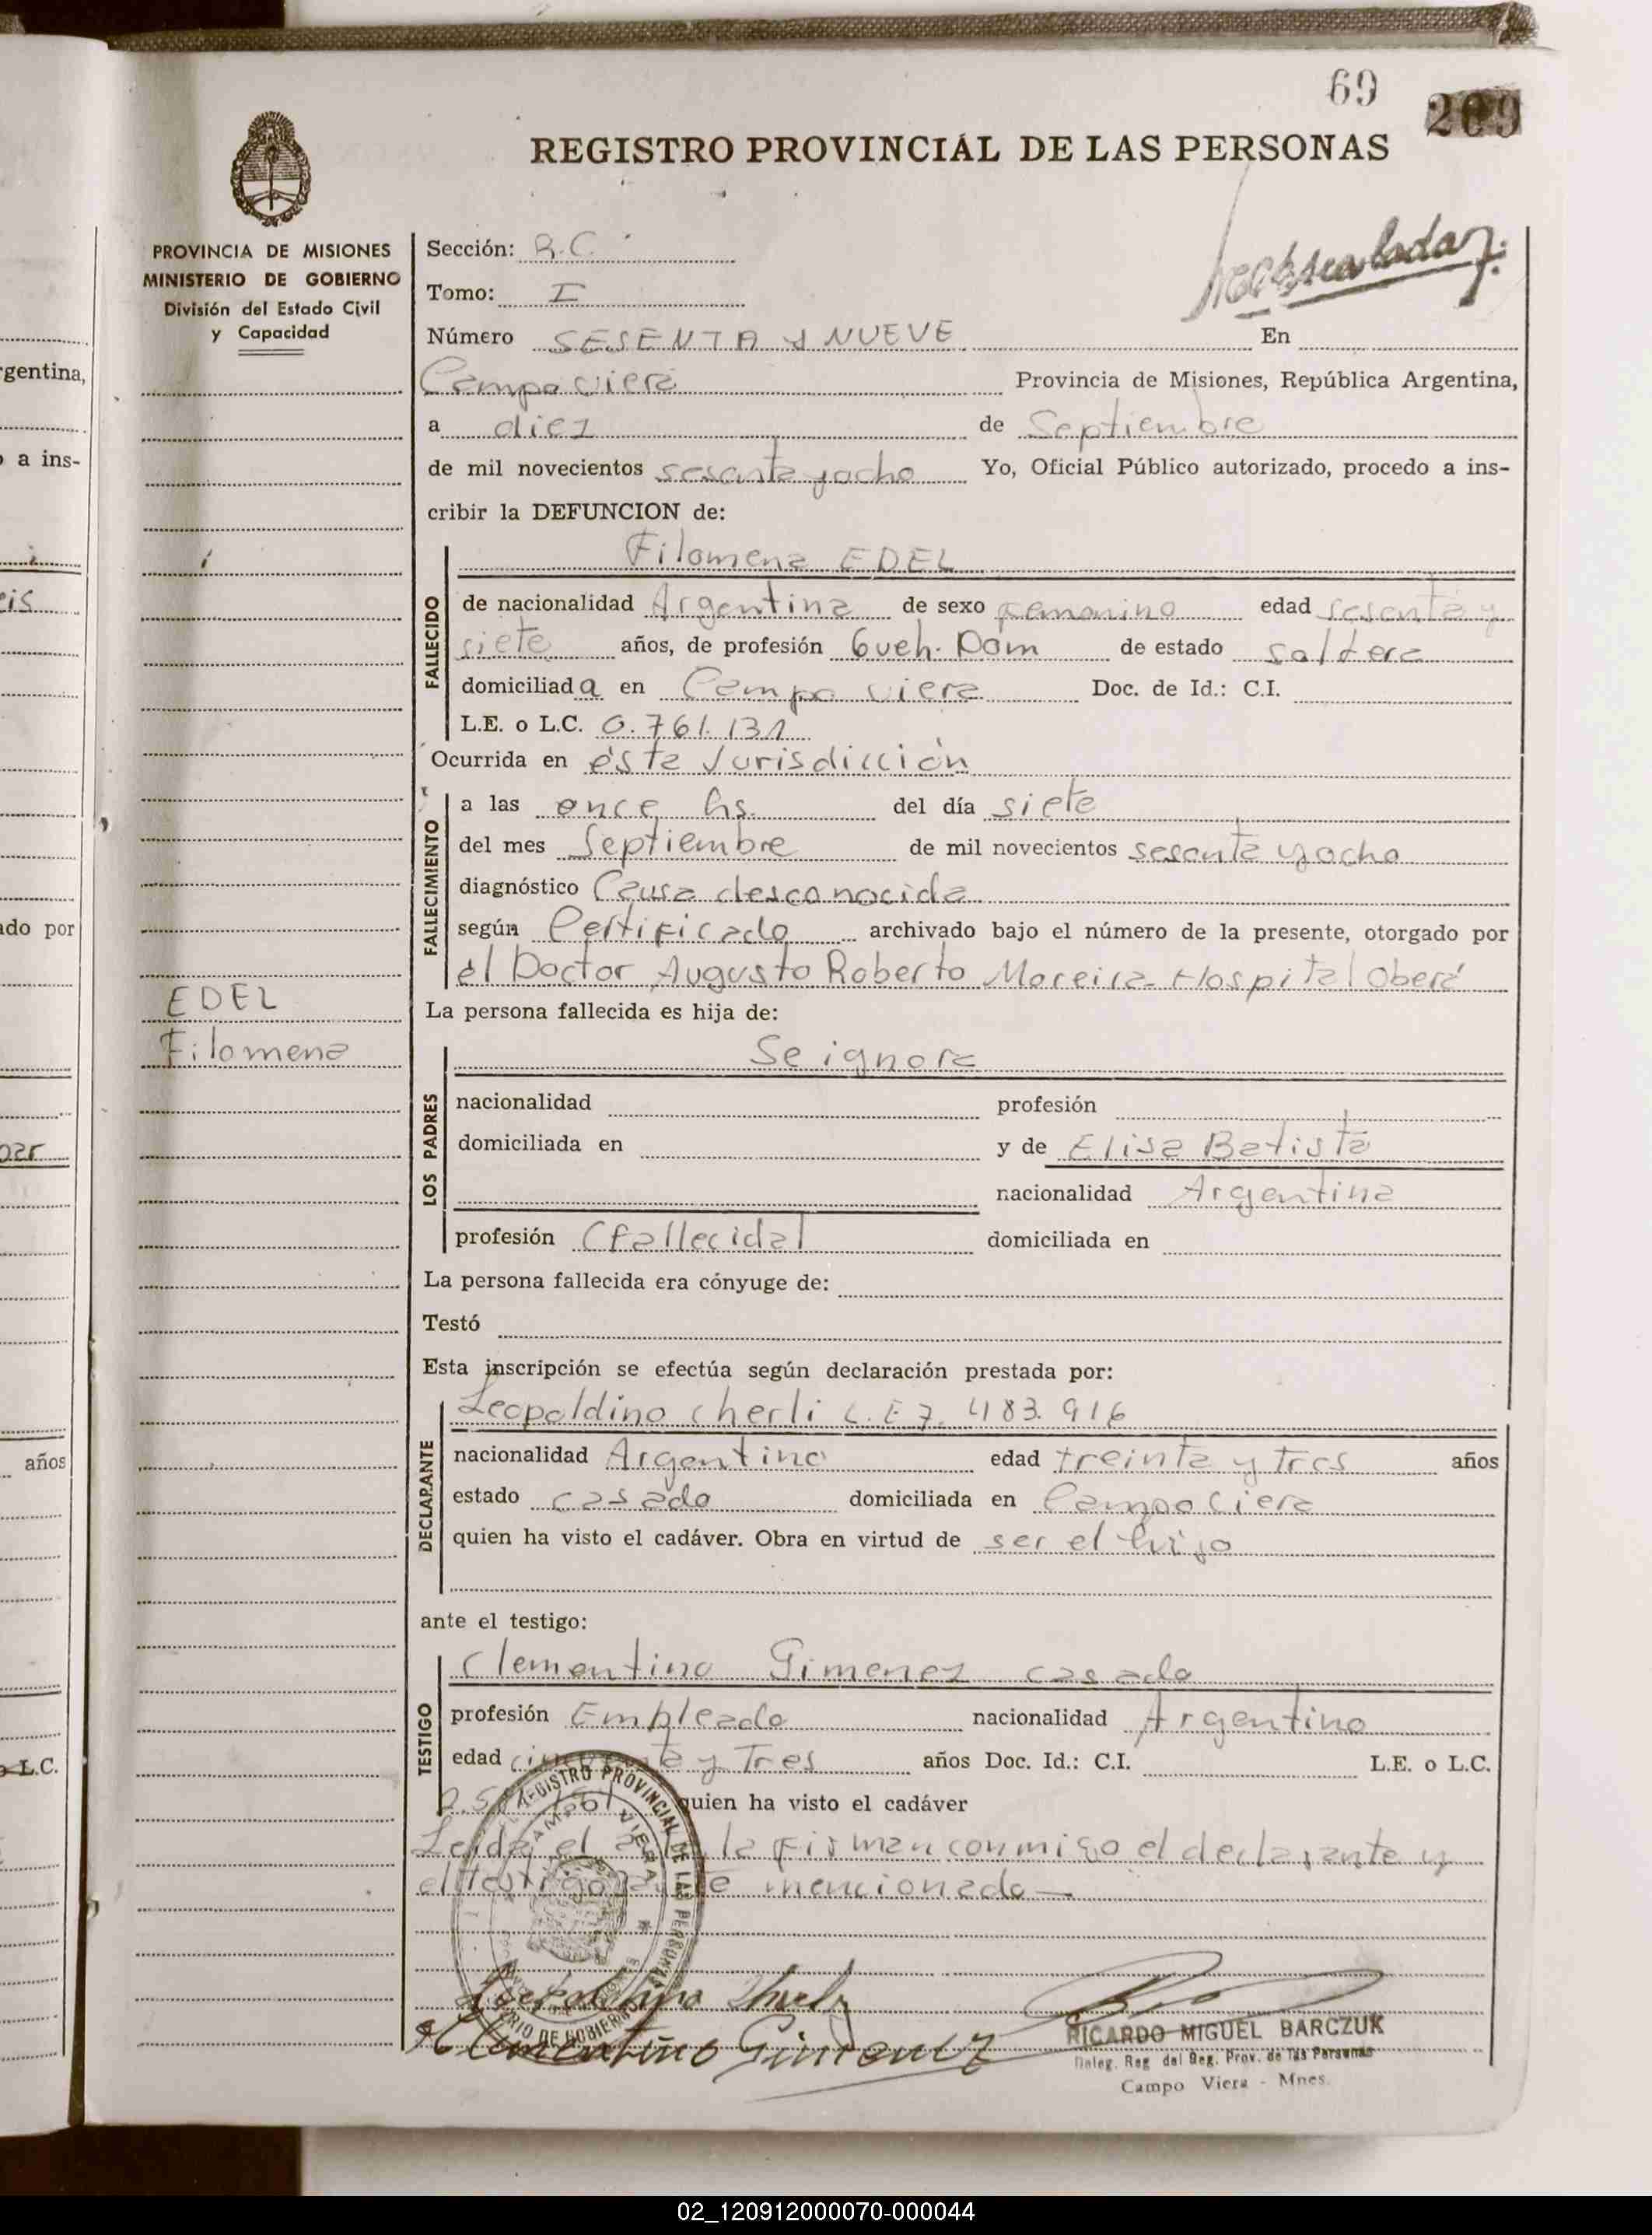 69
209
REGISTRO PROVINCIAL DE LAS PERSONAS
PROVINCIA DE MISIONES
MINISTERIO DE GOBIERNO
División del Estado Civil
y Capacidad
Sección: R.C.
Tomo: I
Número SESENTA y NUEVE En
Campo Viera Provincia de Misiones, República Argentina,
a diez de Septiembre
de mil novecientos sesenta y ocho Yo, Oficial Público autorizado, procedo a ins-
cribir la DEFUNCION de:
FALLECIDO
Filomena EDEL
de nacionalidad Argentina de sexo femenino edad sesenta y
siete años, de profesión Queh. Dom de estado soltera
domiciliada en Campo Viera Doc. de Id.: C.I.
L.E. o L.C. 0.761.131
Ocurrida en ésta Jurisdicción
FALLECIMIENTO
a las once hs. del día siete
del mes Septiembre de mil novecientos sesenta y ocho
diagnóstico Causa desconocida
según Certificado archivado bajo el número de la presente, otorgado por
él Doctor Augusto Roberto Moreira Hospital Oberá
EDEL
Filomena
La persona fallecida es hija de:
LOS PADRES
Se ignora
nacionalidad profesión
domiciliada en y de Elisa Batista
nacionalidad Argentina
profesión (fallecida) domiciliada en
La persona fallecida era cónyuge de:
Testó
Esta inscripción se efectúa según declaración prestada por:
DECLARANTE
Leopoldino Cherli L.E 7.483.916
nacionalidad Argentino edad treinta y tres años
estado casado domiciliada en Campo Viera
quien ha visto el cadáver. Obra en virtud de ser el hijo
ante el testigo:
TESTIGO
Clementino Gimenez casado
profesión Empleado nacionalidad Argentino
edad cincuenta y Tres años Doc. Id.: C.I. L.E. o L.C.
quien ha visto el cadáver
Leida el acta la firman conmigo el declarante y
el testigo mencionado
REGISTRO PROVINCIAL DE LAS PERSONAS
CAMPO VIERA
Clementino Gimenez
RICARDO MIGUEL BARCZUK
Deleg. Reg. del Reg. Prov. de las Personas
Campo Viera - Mnes.
gentina,
a ins-
eis
ado por
par
años
o L.C.
02_120912000070-000044